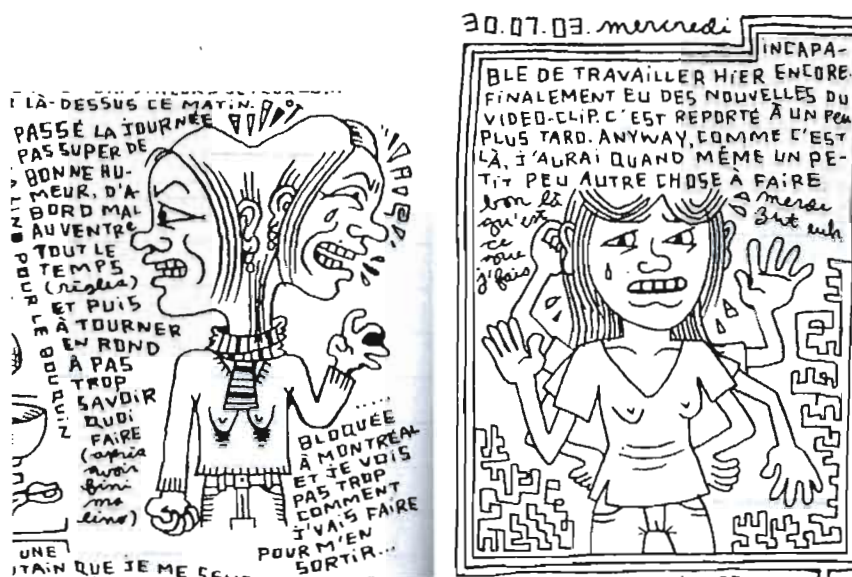 LÀ-DESSUS CE MATIN.
PASSÉ LA JOURNÉE
PAS SUPER DE
BONNE HU-
MEUR, D'A-
BORD MAL
AU VENTRE
TOUT LE
TEMPS
(règles)
ET PUIS
À TOURNER
EN ROND
À PAS
TROP
SAVOIR
QUOI
FAIRE
(après
avoir
fini
mo
lino)
LINO POUR LE BOUQUIN
.....
BLOQUÉE
À MONTRÉAL
ET JE VOIS
PAS TROP
COMMENT
J'VAIS FAIRE
POUR M'EN
SORTIR...
UNE
QUE JE ME
30.07.03. mercredi
INCAPA-
BLE DE TRAVAILLER HIER ENCORE.
FINALEMENT EU DES NOUVELLES DU
VIDEO-CLIP. C'EST REPORTÉ À UN PEU
PLUS TARD. ANYWAY, COMME C'EST
LÀ, J'AURAI QUAND MÊME UN PE-
TIT PEU AUTRE CHOSE À FAIRE
bon là
qu'est
ce
que
j'fais
merde
zut euh